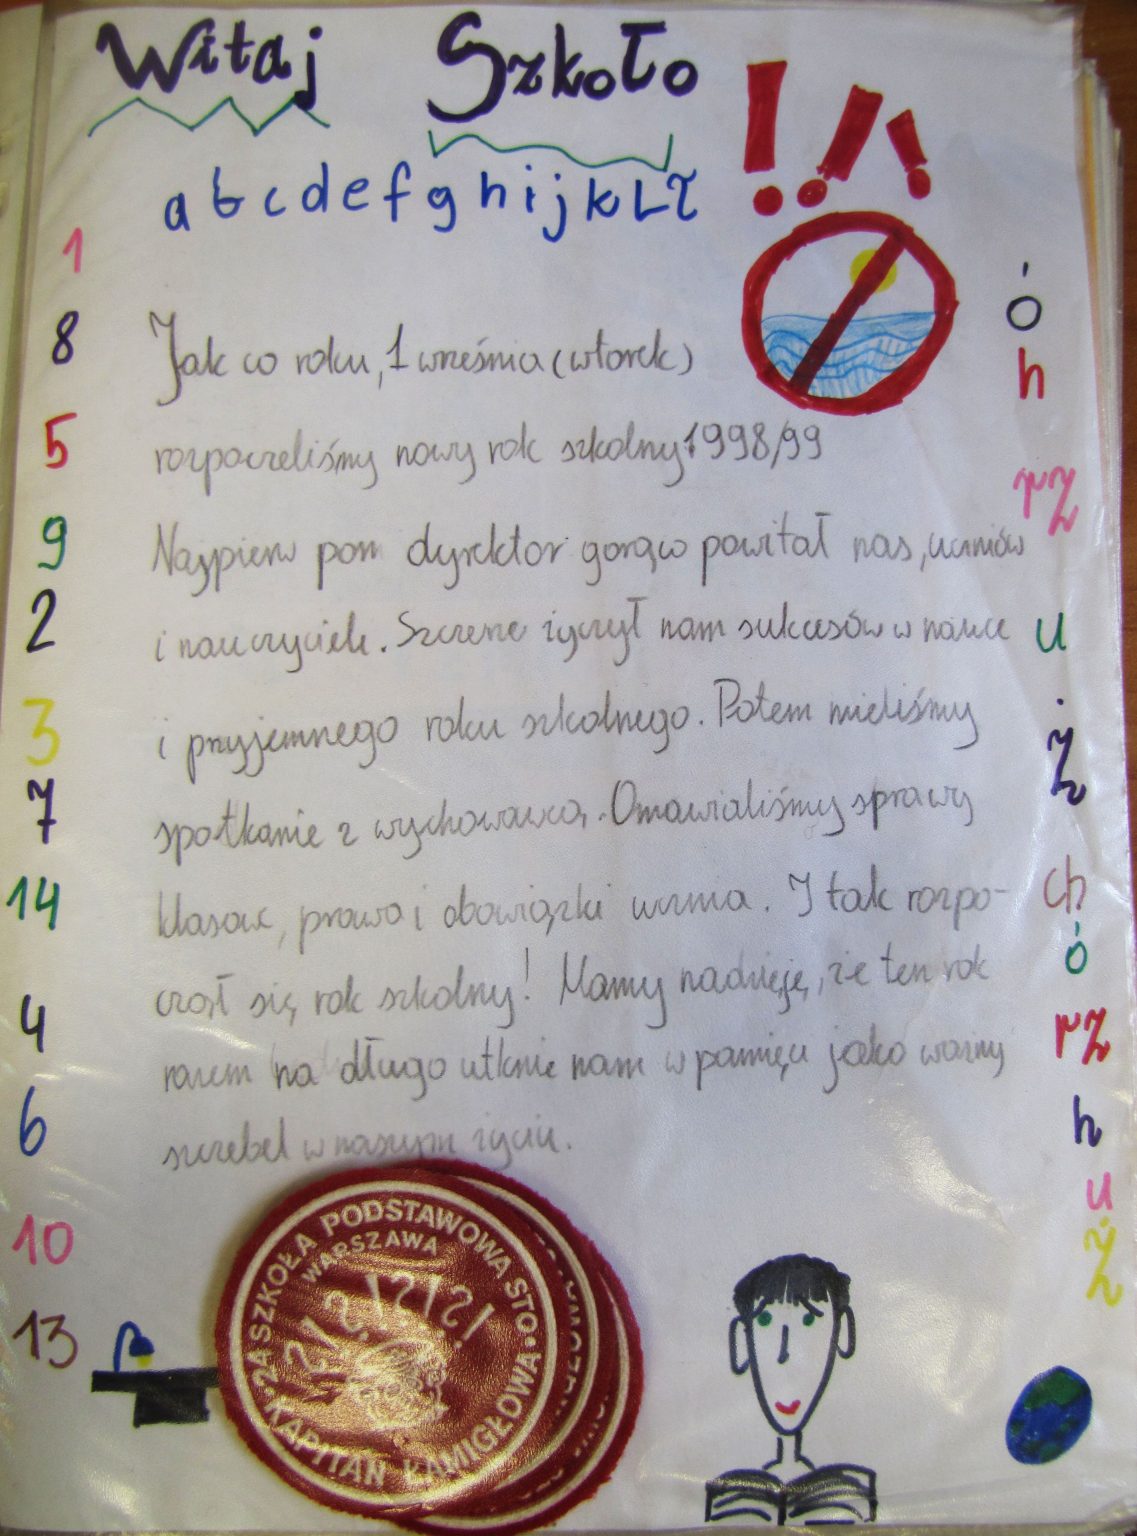 Witaj Szkoło
!!!
a b c d e f g h i j k L Ł
1
8
5
9
2
3
7
14
4
6
10
13
Jak co roku, 1 września (wtorek)
rozpoczeliśmy nowy rok szkolny 1998/99
Najpierw pan dyrektor gorąco powitał nas, uczniów
i nauczyciele. Szczerze życzył nam sukcesów w nauce
i przyjemnego roku szkolnego. Potem mieliśmy
spotkanie z wychowawcą. Omawialiśmy sprawy
klasowe, prawa i obowiązki ucznia. I tak rozpo-
czął się rok szkolny! Mamy nadzieję, że ten rok
razem na długo utknie nam w pamięci jako ważny
szczebel w naszym życiu.
ó
h
rz
u
ż
ch
ó
rz
h
u
ż
24 SZKOŁA PODSTAWOWA STO
WARSZAWA
?!?!?!?!
KAPITAN ŁAMIGŁOWA